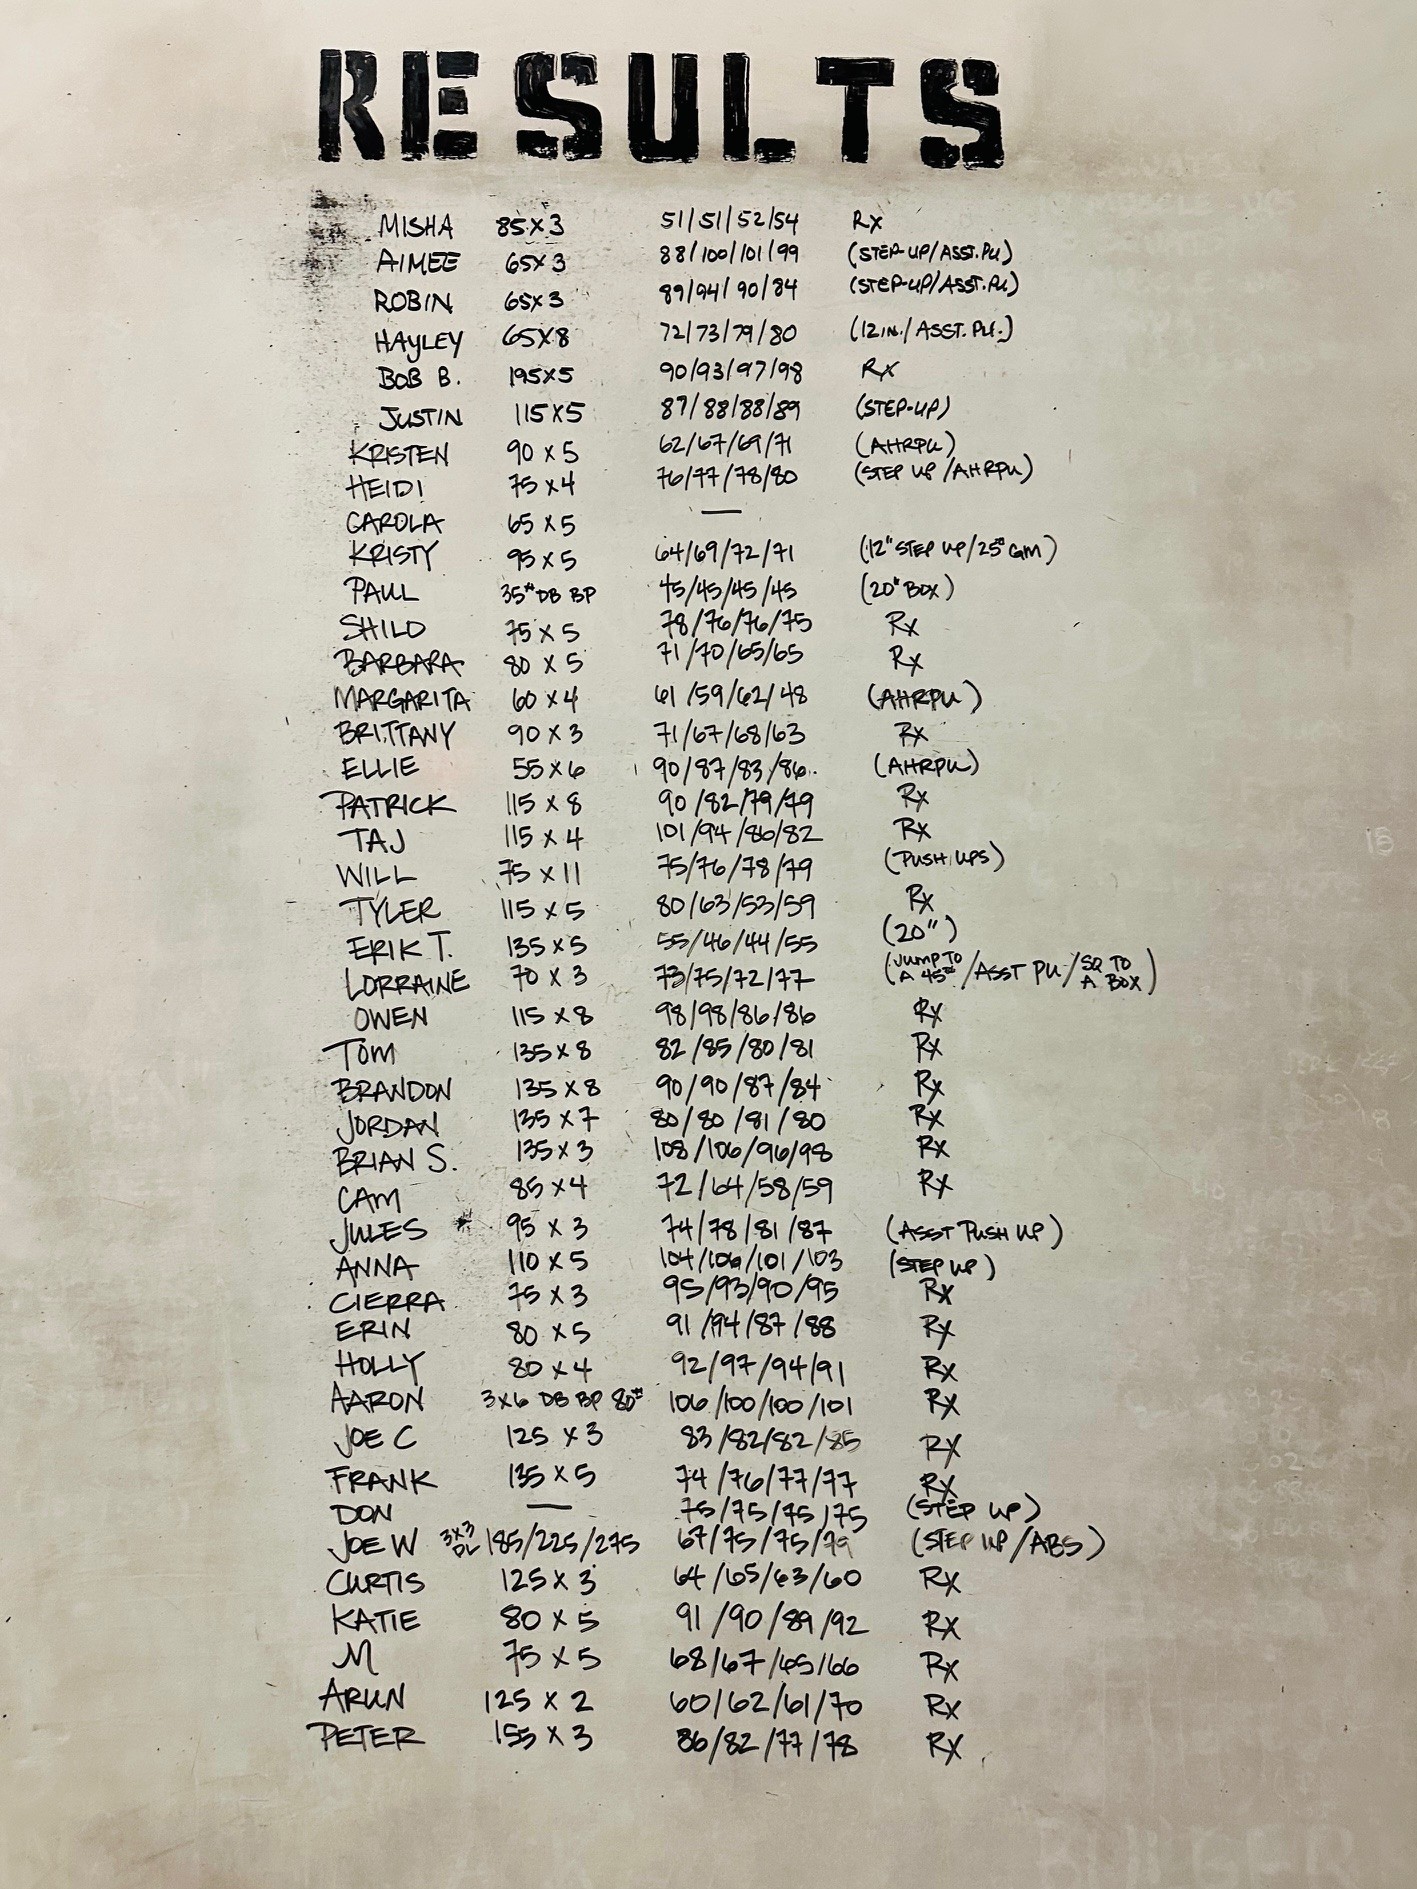 RESULTS
MISHA 85 x 3 51/51/52/54 Rx
AIMEE 65x3 88/100/101/99 (STEP-UP/ASST.PU)
ROBIN 65x3 89/94/90/84 (STEP-UP/ASST.PU)
HAYLEY 65x8 72/73/79/80 (12IN./ASST.PU.)
BOB B. 195x5 90/93/97/98 Rx
JUSTIN 115x5 87/88/88/89 (STEP-UP)
KRISTEN 90 x 5 62/67/69/71 (AHRPU)
HEIDI 75 x 4 76/77/78/80 (STEP UP/AHRPU)
CAROLA 65 x 5 —
KRISTY 95 x 5 64/69/72/71 (12" STEP UP/25# GM)
PAUL 35# DB BP 45/45/45/45 (20" BOX)
SHILO 75 x 5 78/76/76/75 Rx
BARBARA 80 x 5 71/70/65/65 Rx
MARGARITA 60 x 4 61/59/62/48 (AHRPU)
BRITTANY 90 x 3 71/67/68/63 Rx
ELLIE 55 x 6 90/87/83/86 (AHRPU)
PATRICK 115 x 8 90/82/79/79 Rx
TAJ 115 x 4 101/94/86/82 Rx
WILL 75 x 11 75/76/78/79 (PUSH UPS)
TYLER 115 x 5 80/63/53/59 Rx
ERIK T. 135 x 5 55/46/44/55 (20")
LORRAINE 70 x 3 73/75/72/77 (JUMP TO A 45#/ASST PU/SQ TO A BOX)
OWEN 115 x 8 98/98/86/86 Rx
TOM 135 x 8 82/85/80/81 Rx
BRANDON 135 x 8 90/90/87/84 Rx
JORDAN 135 x 7 80/80/81/80 Rx
BRIAN S. 135 x 3 108/106/96/98 Rx
CAM 85 x 4 72/64/58/59 Rx
JULES 95 x 3 74/78/81/87 (ASST PUSH UP)
ANNA 110 x 5 104/106/101/103 (STEP UP)
CIERRA 75 x 3 95/93/90/95 Rx
ERIN 80 x 5 91/94/87/88 Rx
HOLLY 80 x 4 92/97/94/91 Rx
AARON 3x6 DB BP 80# 106/100/100/101 Rx
JOE C 125 x 3 83/82/82/85 Rx
FRANK 135 x 5 74/76/77/77 Rx
DON — 75/75/75/75 (STEP UP)
JOE W 3x3 DL 185/225/275 67/75/75/79 (STEP UP/ABS)
CURTIS 125 x 3 64/65/63/60 Rx
KATIE 80 x 5 91/90/89/92 Rx
M 75 x 5 68/67/65/66 Rx
ARUN 125 x 2 60/62/61/70 Rx
PETER 155 x 3 86/82/77/78 Rx